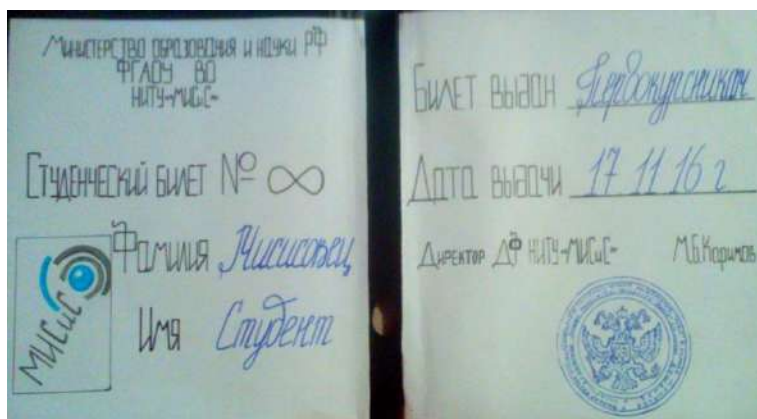 Министерство образования и науки РФ
ФГАОУ ВО
НИТУ «МИСиС»
Студенческий билет № ∞
Фамилия Мисисовец
Имя Студент
МИСиС
Билет выдан Первокурсникам
Дата выдачи 17 11 16 г
Директор ДФ НИТУ «МИСиС» М.Б.Каримов